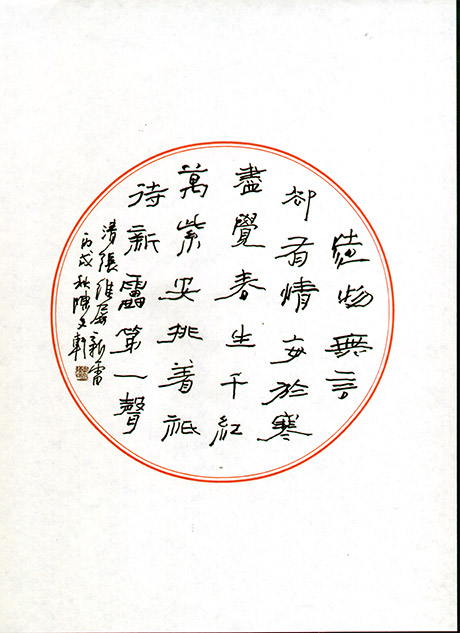 造物無言
卻有情每於寒
盡覺春生千紅
萬紫安排着祇
待新雷第一聲
清張維屏新雷
丙戌秋陳文軒